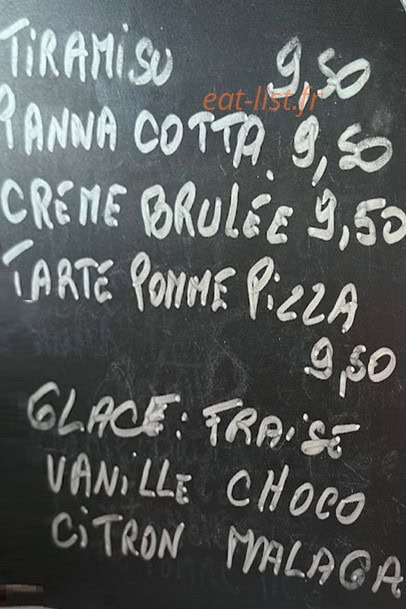 TIRAMISU 9,50
eat-list.fr
PANNA COTTA. 9,50
CRÈME BRULÉE 9,50
TARTE POMME PIZZA
9,50
GLACE: FRAISE
VANILLE CHOCO
CITRON MALAGA